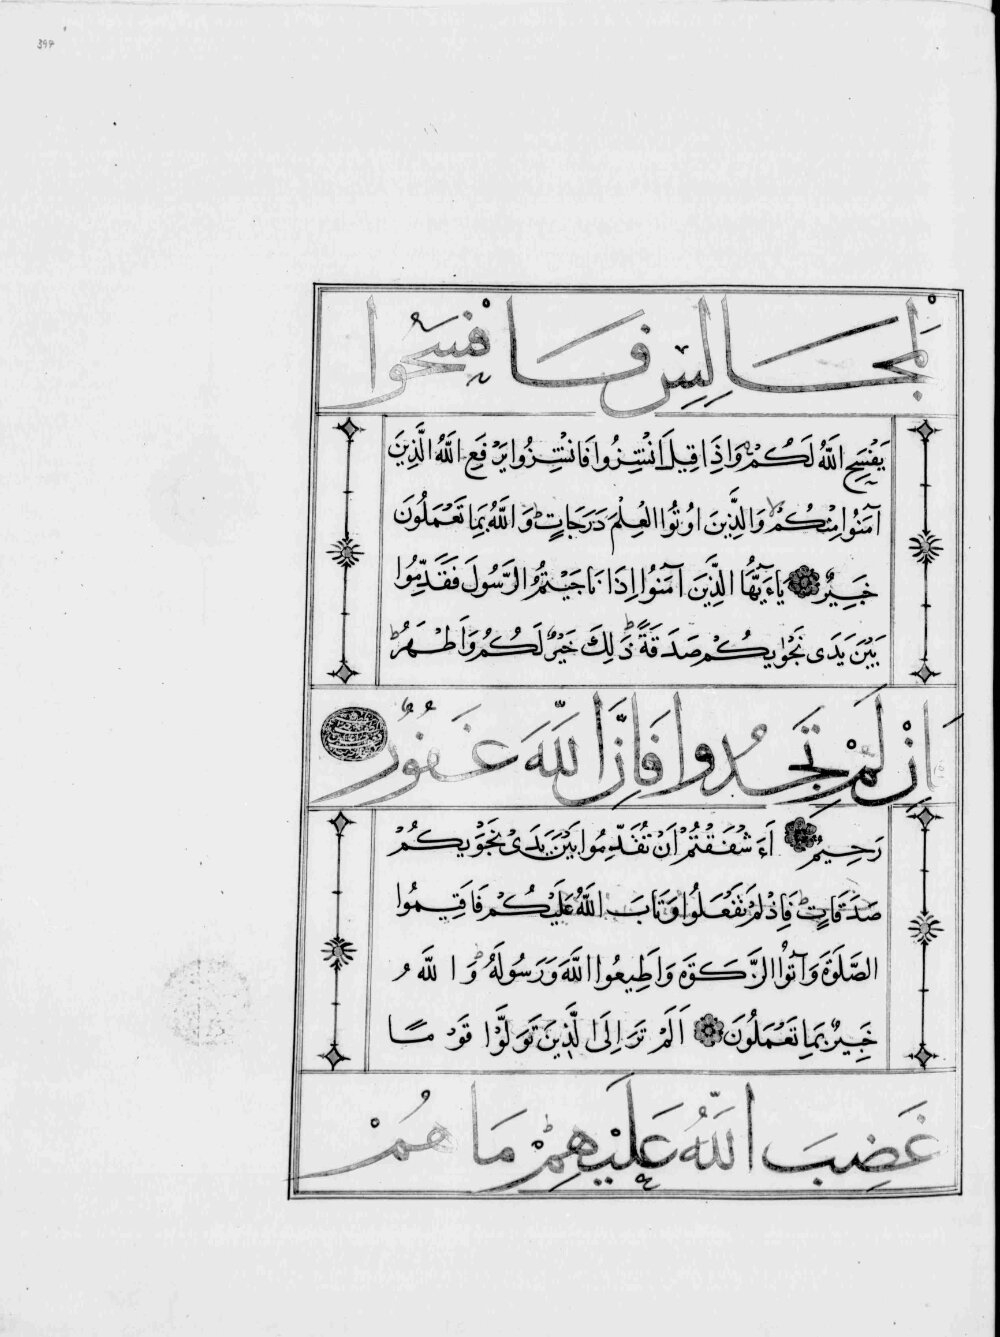 394
لْمَجَالِسِ فَافْسَحُوا
يَفْسَحِ اللَّهُ لَكُمْ وَاِذَا قِيلَ انْشِزُوا فَانْشِزُوا يَرْفَعِ اللَّهُ الَّذِينَ
آمَنُوا مِنْكُمْ وَالَّذِينَ اُوتُوا الْعِلْمَ دَرَجَاتٍ وَاللَّهُ بِمَا تَعْمَلُونَ
خَبِيرٌ يَاءَيُّهَا الَّذِينَ آمَنُوا اِذَا نَاجَيْتُمُ الرَّسُولَ فَقَدِّمُوا
بَيْنَ يَدَى نَجْوٰيكُمْ صَدَقَةً ذَلِكَ خَيْرٌ لَكُمْ وَاَطْهَرُ
اِنْ لَمْ تَجِدُوا فَاِنَّ اللَّهَ غَفُورٌ
رَحِيمٌ ءَاَشْفَقْتُمْ اَنْ تُقَدِّمُوا بَيْنَ يَدَىْ نَجْوٰيكُمْ
صَدَقَاتٍ فَاِذْ لَمْ تَفْعَلُوا وَتَابَ اللَّهُ عَلَيْكُمْ فَاَقِيمُوا
الصَّلٰوةَ وَآتُوا الزَّكٰوةَ وَاَطِيعُوا اللَّهَ وَرَسُولَهُ وَاللَّهُ
خَبِيرٌ بِمَا تَعْمَلُونَ اَلَمْ تَرَ اِلَى الَّذِينَ تَوَلَّوْا قَوْمًا
غَضِبَ اللَّهُ عَلَيْهِمْ مَا هُمْ